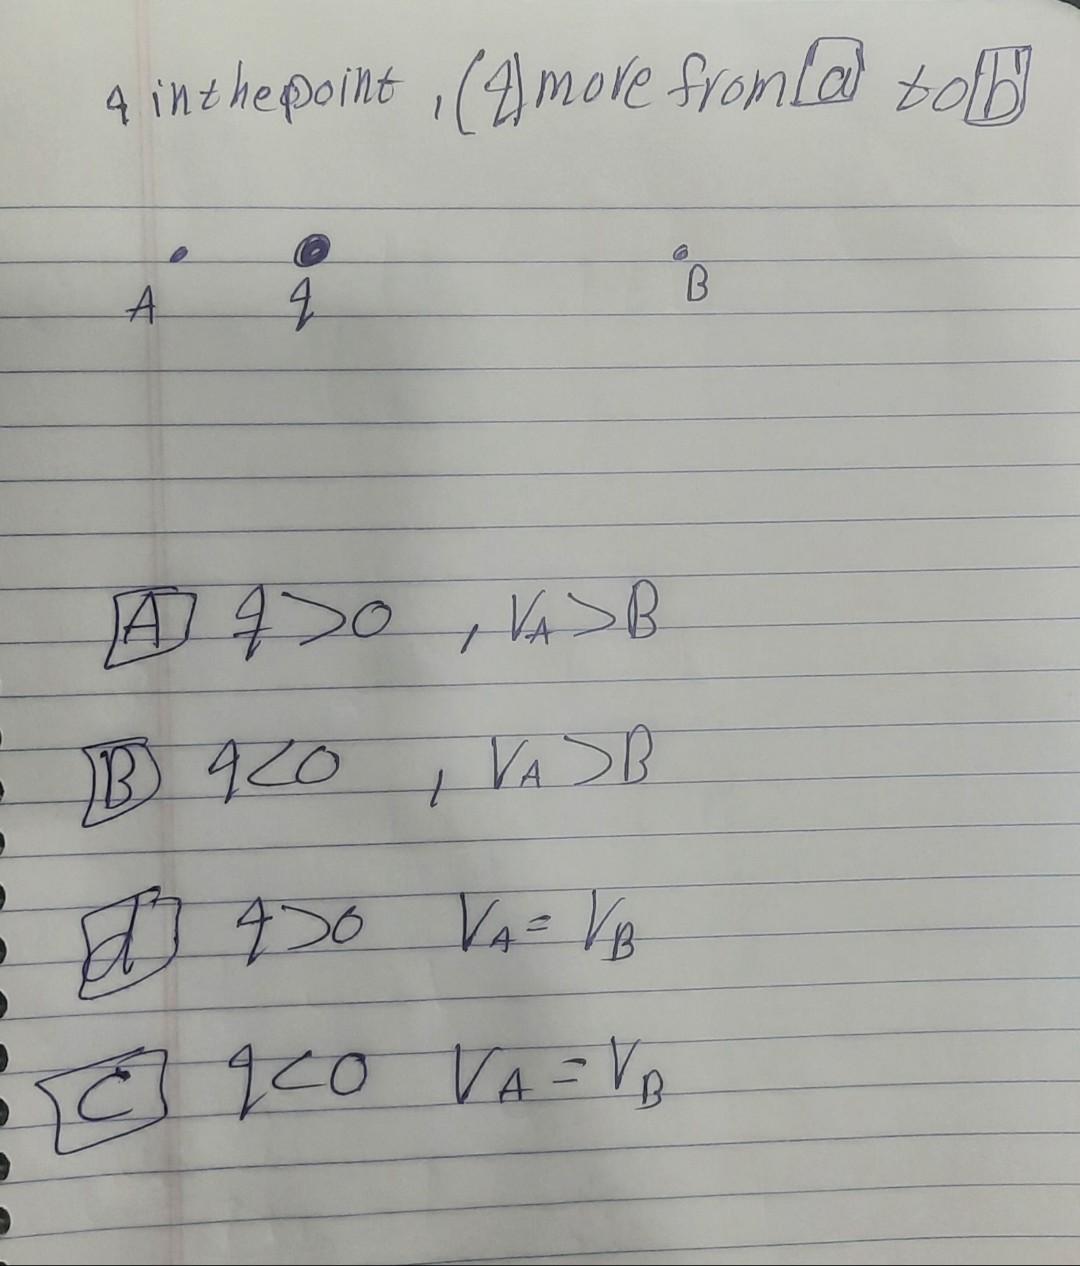 q in the point, (q) more from a to b
A q B
A q>0 , VA>B
B q<0 , VA>B
d q>0 VA = VB
C q<0 VA = VB